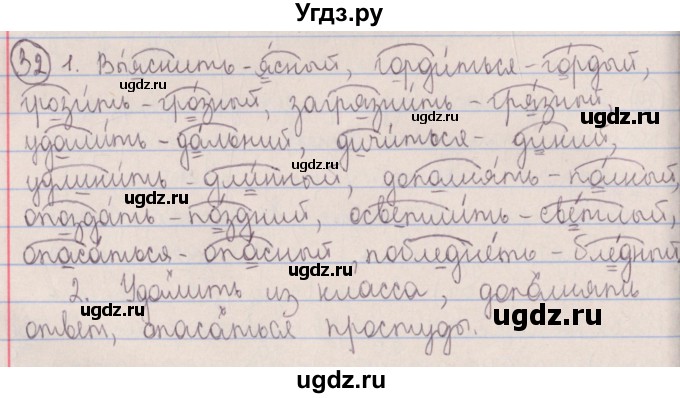 Угдз.ру
32 1. Вы́яснить – я́сный, горди́ться – го́рдый,
грози́ть – гро́зный, загрязни́ть – гря́зный,
удали́ть – да́льний, дичи́ться – ди́кий,
удлини́ть – дли́нный, дополня́ть – по́лный,
опозда́ть – по́здний, осветли́ть – све́тлый,
опаса́ться – опа́сный, побледне́ть – бле́дный.
2. Удалить из класса, дополнять
ответ, опасаться простуды.
ugdz.ru
ugdz.ru
ugdz.ru
ugdz.ru
ugdz.ru
ugdz.ru
ugdz.ru
ugdz.ru
ugdz.ru